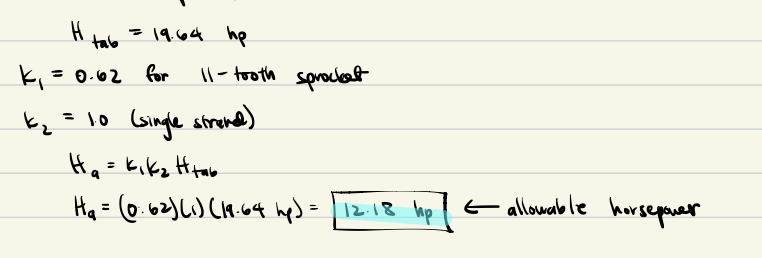 H tab = 19.64 hp
K₁ = 0.62 for 11-tooth sprocket
K₂ = 1.0 (single strand)
Hₐ = K₁K₂ H tab
Hₐ = (0.62)(1)(19.64 hp) = 12.18 hp ← allowable horsepower